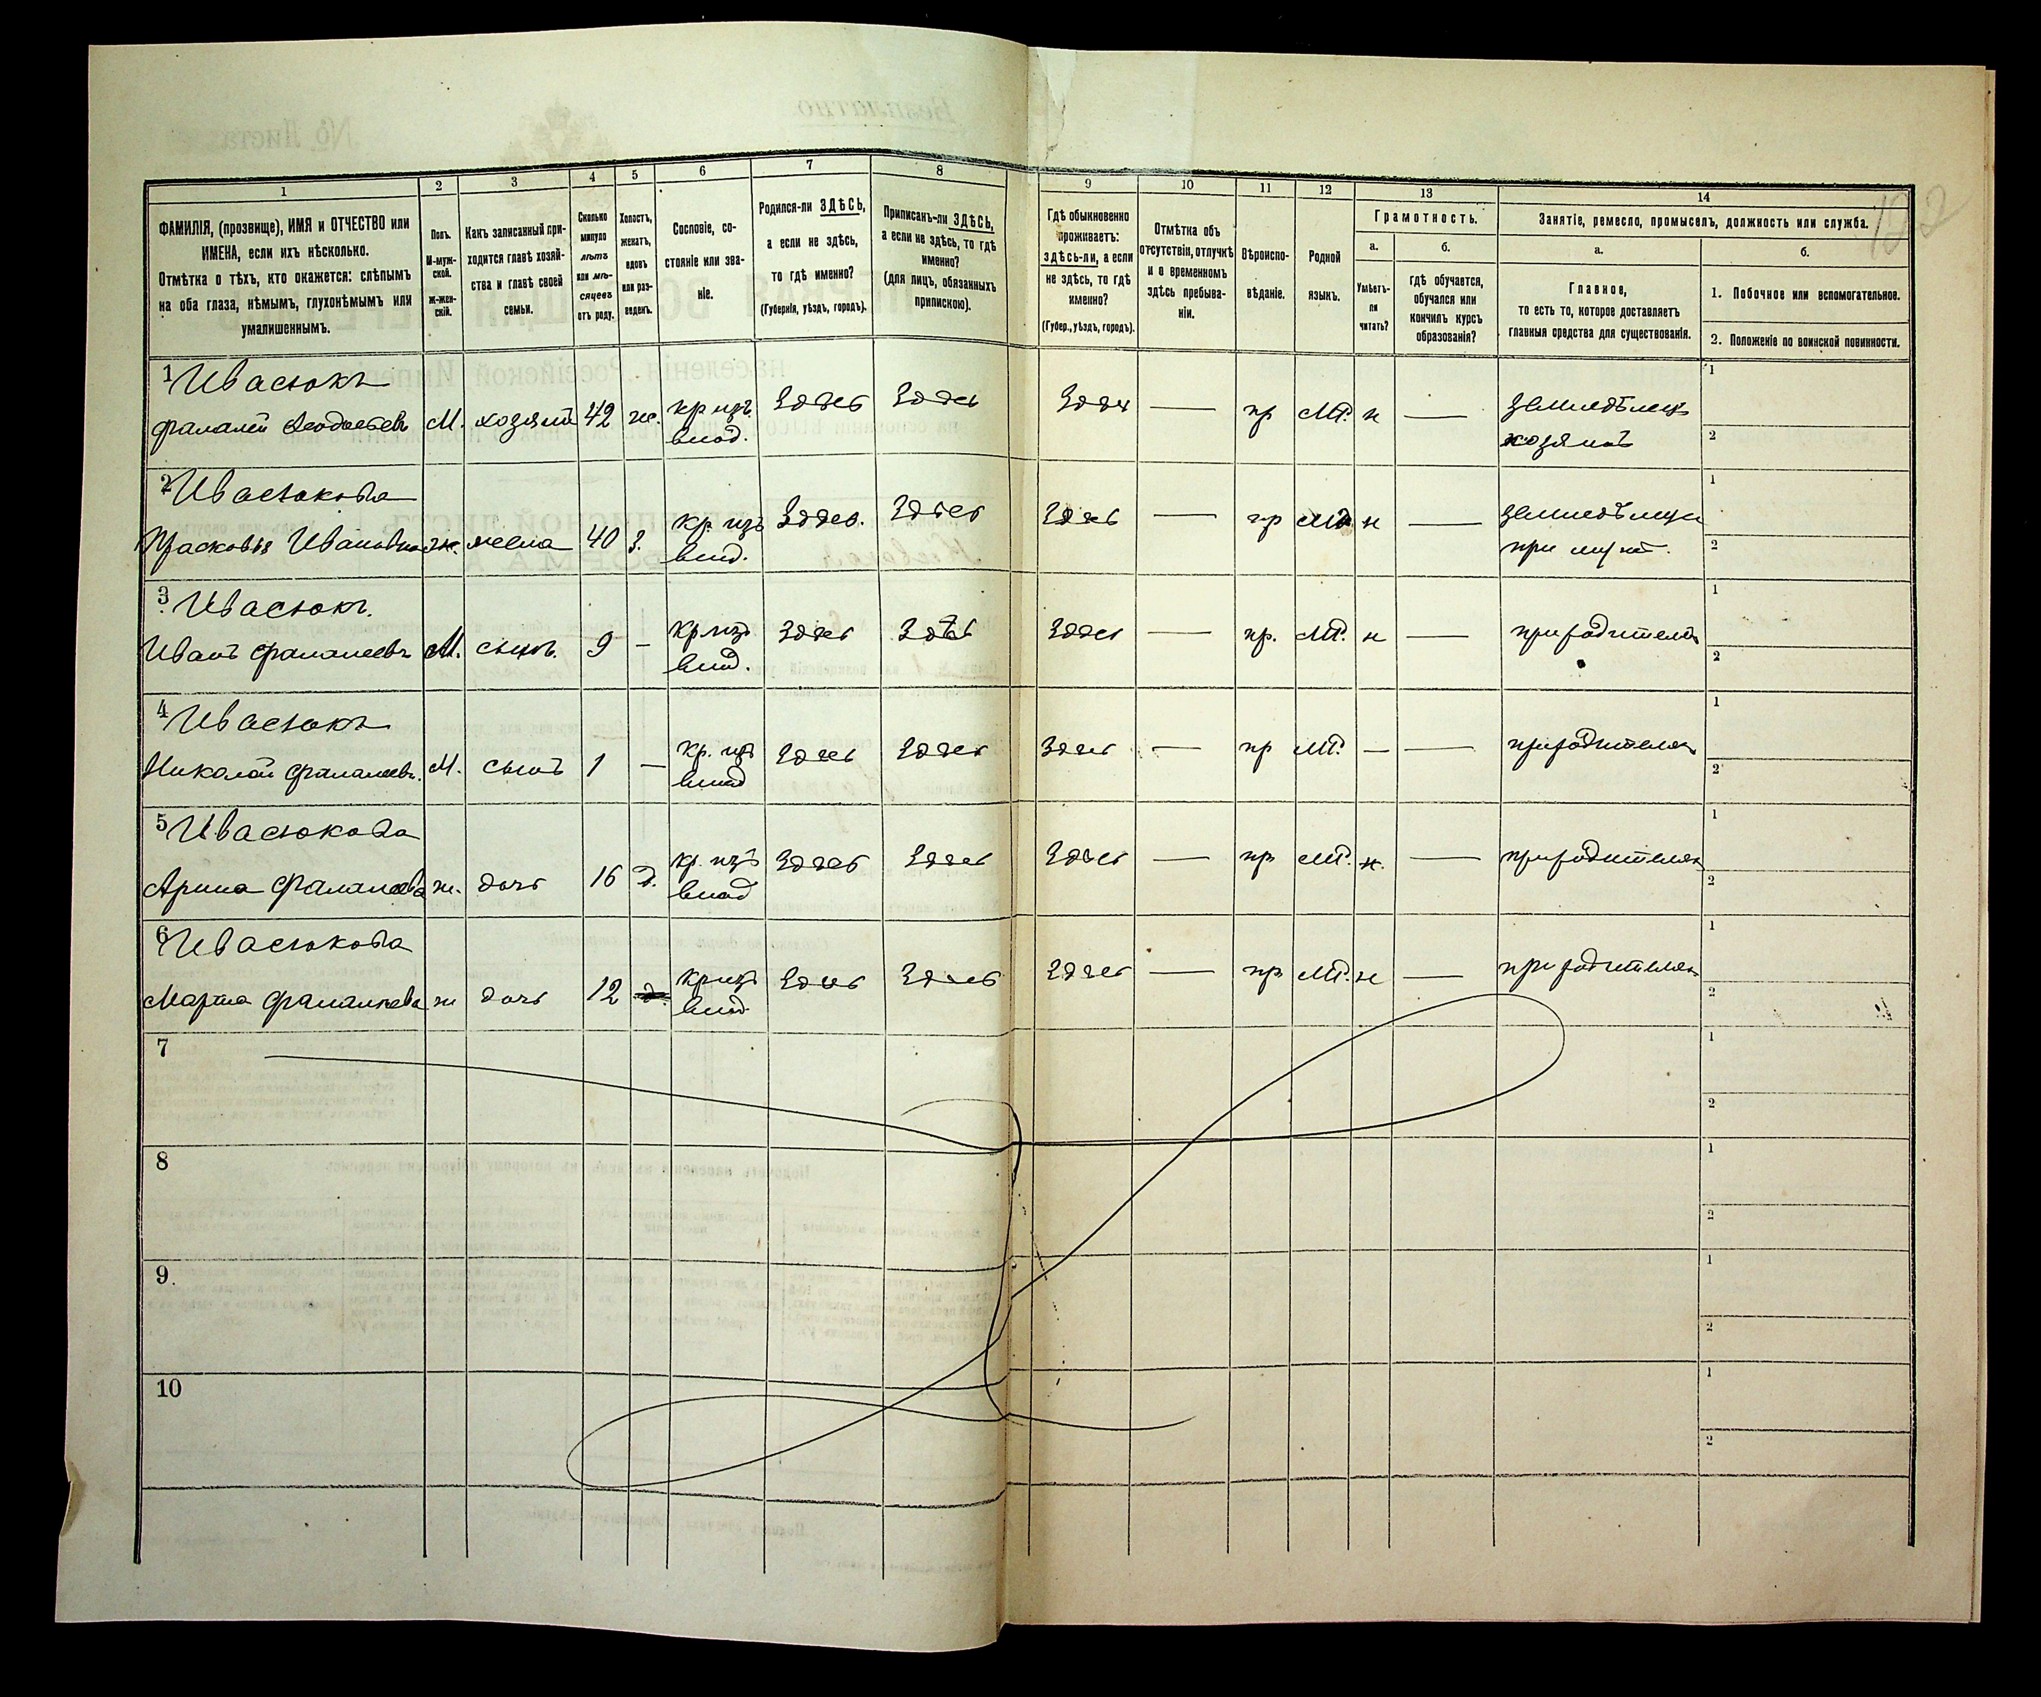 122
1 2 3 4 5 6 7 8 9 10 11 12 13 14
ФАМИЛІЯ, (прозвище), ИМЯ и ОТЧЕСТВО или
ИМЕНА, если ихъ нѣсколько.
Отмѣтка о тѣхъ, кто окажется: слѣпымъ
на оба глаза, нѣмымъ, глухонѣмымъ или
умалишеннымъ.
Полъ.
М-муж-
ской.
Ж-жен-
скій.
Какъ записанный при-
ходится главѣ хозяй-
ства и главѣ своей
семьи.
Сколько
минуло
лѣтъ
или мѣ-
сяцевъ
отъ роду.
Холостъ,
женатъ,
вдовъ
или раз-
веденъ.
Сословіе, со-
стояніе или зва-
ніе.
Родился-ли ЗДѢСЬ,
а если не здѣсь,
то гдѣ именно?
(Губернія, уѣздъ, городъ).
Приписанъ-ли ЗДѢСЬ,
а если не здѣсь, то гдѣ
именно?
(для лицъ, обязанныхъ
припискою).
Гдѣ обыкновенно
проживаетъ:
здѣсь-ли, а если
не здѣсь, то гдѣ
именно?
(Губер., уѣздъ, городъ).
Отмѣтка объ
отсутствіи, отлучкѣ
и о временномъ
здѣсь пребыва-
ніи.
Вѣроиспо-
вѣданіе.
Родной
языкъ.
Грамотность.
а.
Умѣетъ-
ли
читать?
б.
гдѣ обучается,
обучался или
кончилъ курсъ
образованія?
Занятіе, ремесло, промыселъ, должность или служба.
а.
Главное,
то есть то, которое доставляетъ
главныя средства для существованія.
б.
1. Побочное или вспомогательное.
2. Положеніе по воинской повинности.
1 Ивасюкъ
Фалалей М. хозяинъ 42 ж. кр. изъ влад. Здѣсь Здѣсь Здѣсь — пр МР. н — земледѣлецъ хозяинъ 1 2
2 Ивасюкова
Прасковья Ивановна ж. жена 40 з. кр. изъ влад. Здѣсь. Здѣсь Здѣсь — пр МР н — при 1 2
3 Ивасюкъ.
Иванъ Фалалеевъ М. сынъ. 9 — кр изъ влад. Здѣсь Здѣсь Здѣсь — пр. МР. н — при родителяхъ 1 2
4 Ивасюкъ
Николай Фалалеевъ. М. сынъ 1 — кр. изъ влад Здѣсь Здѣсь Здѣсь — пр МР. — — при родителяхъ 1 2
5 Ивасюкова
Арина Фалалеева ж. дочь 16 д. кр. изъ влад Здѣсь Здѣсь Здѣсь — пр МР. н. — при родителяхъ 1 2
6 Ивасюкова
Марта Фалалеева ж дочь 12 кр изъ влад. Здѣсь Здѣсь Здѣсь — пр МР. н — при родителяхъ 1 2
7 1 2
8 1 2
9. 1 2
10 1 2